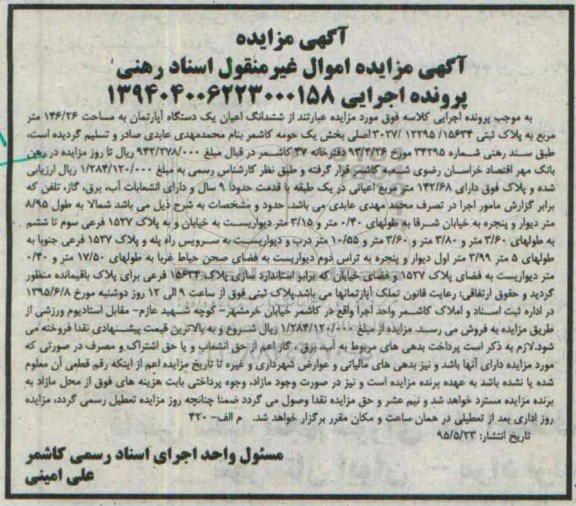 آگهی مزایده
آگهی مزایده اموال غیرمنقول اسناد رهنی
پرونده اجرایی ۱۳۹۴۰۴۰۰۶۲۲۳۰۰۰۱۵۸
به موجب پرونده اجرایی کلاسه فوق مورد مزایده عبارتند از ششدانگ اعیان یک دستگاه آپارتمان به مساحت ۱۴۶/۲۶ متر
مربع به پلاک ثبتی ۱۵۶۳۴/ ۱۲۲۹۵ /۳۰۲۷ اصلی بخش یک حومه کاشمر بنام محمدمهدی عابدی صادر و تسلیم گردیده است،
طبق سند رهنی شماره ۳۴۲۹۵ مورخ ۹۳/۳/۲۶ دفترخانه ۳۷ کاشمر در قبال مبلغ ۹۴۲/۲۷۸/۰۰۰ ریال تا روز مزایده در رهن
بانک مهر اقتصاد خراسان رضوی شعبه کاشمر قرار گرفته و طبق نظر کارشناس رسمی به مبلغ ۱/۲۸۴/۱۲۰/۰۰۰ ریال ارزیابی
شده و پلاک فوق دارای ۱۴۲/۶۸ متر مربع اعیانی در یک طبقه با قدمت حدوداً ۹ سال و دارای انشعابات آب، برق، گاز، تلفن که
برابر گزارش مامور اجرا در تصرف محمد مهدی عابدی می باشد حدود و مشخصات به شرح ذیل می باشد شمالا به طول ۸/۹۵
متر دیوار و پنجره به خیابان شرقا به طولهای ۰/۴۰ متر و ۳/۱۵ متر دیواریست به خیابان و به پلاک ۱۵۲۷ فرعی سوم تا ششم
به طولهای ۳/۶۰ متر و ۳/۸۰ متر و ۳/۶۰ متر و ۱۰/۵۵ متر درب و دیواریست به سرویس راه پله و پلاک ۱۵۲۷ فرعی جنوبا به
طولهای ۵ متر ۳/۹۹ متر اول دیوار و پنجره به تراس دوم دیواریست به فضای صحن حیاط غربا به طولهای ۱۷/۵۰ متر و ۰/۴۰
متر دیواریست به فضای پلاک ۱۵۲۷ و فضای خیابان که برابر استاندارد سازی پلاک ۱۵۶۳۴ فرعی برای پلاک باقیمانده منظور
گردید و حقوق ارتفاقی: رعایت قانون تملک آپارتمانها می باشد.پلاک ثبتی فوق از ساعت ۹ الی ۱۲ روز دوشنبه مورخ ۱۳۹۵/۶/۸
در اداره ثبت اسناد و املاک کاشمر واحد اجرا واقع در کاشمر خیابان خرمشهر- کوچه شهید عازم- مقابل استادیوم ورزشی از
طریق مزایده به فروش می رسد. مزایده از مبلغ ۱/۲۸۴/۱۲۰/۰۰۰ ریال شروع و به بالاترین قیمت پیشنهادی نقدا فروخته می
شود.لازم به ذکر است پرداخت بدهی های مربوط به آب، برق، گاز اعم از حق انشعاب و یا حق اشتراک و مصرف در صورتی که
مورد مزایده دارای آنها باشد و نیز بدهی های مالیاتی و عوارض شهرداری و غیره تا تاریخ مزایده اعم از اینکه رقم قطعی آن معلوم
شده یا نشده باشد به عهده برنده مزایده است و نیز در صورت وجود مازاد، وجوه پرداختی بابت هزینه های فوق از محل مازاد به
برنده مزایده مسترد خواهد شد و نیم عشر و حق مزایده نقدا وصول می گردد ضمنا چنانچه روز مزایده تعطیل رسمی گردد، مزایده
روز اداری بعد از تعطیلی در همان ساعت و مکان مقرر برگزار خواهد شد. م الف- ۴۲۰
تاریخ انتشار: ۹۵/۵/۲۳
مسئول واحد اجرای اسناد رسمی کاشمر
علی امینی